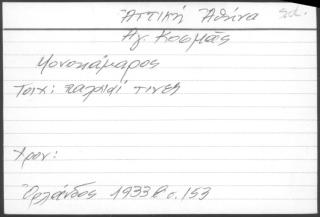 Ἀττική Ἀθήνα
Ἁγ. Κοσμᾶς
Μονοκάμαρος
Τοιχ: παλαιαί τινες
Χρον:
Ὀρλάνδος 1933 β σ. 153